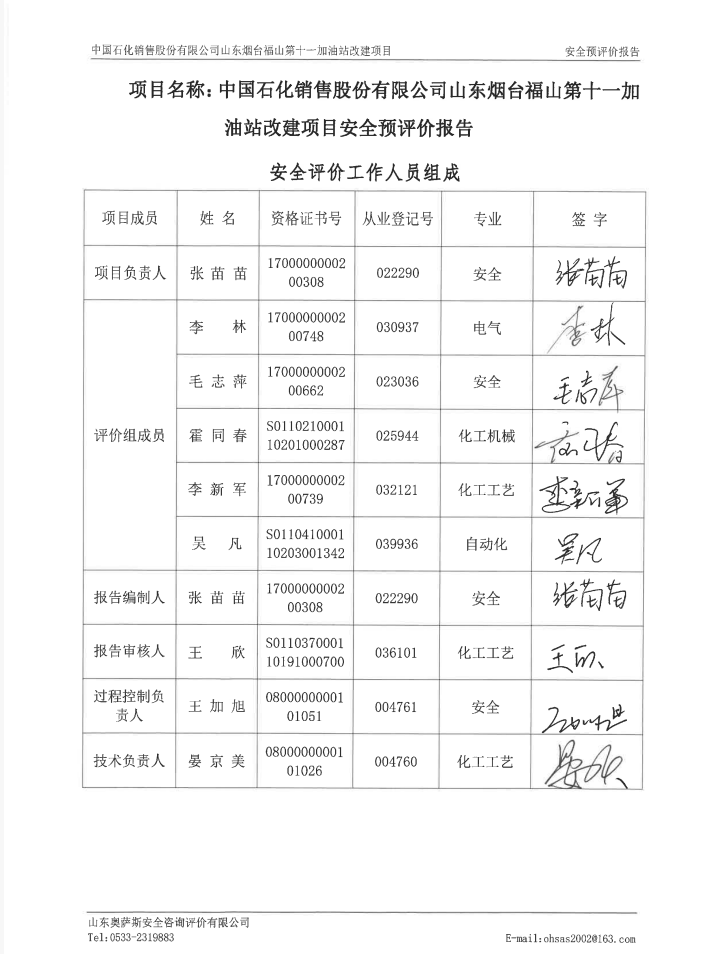 中国石化销售股份有限公司山东烟台福山第十一加油站改建项目 安全预评价报告
项目名称：中国石化销售股份有限公司山东烟台福山第十一加
油站改建项目安全预评价报告
安全评价工作人员组成
项目成员 姓 名 资格证书号 从业登记号 专业 签 字
项目负责人 张 苗 苗 17000000002 022290 安全 张苗苗
00308
评价组成员
李 林 17000000002 030937 电气 李林
00748
毛 志 萍 17000000002 023036 安全 毛志萍
00662
霍 同 春 S0110210001 025944 化工机械 霍同春
10201000287
李 新 军 17000000002 032121 化工工艺 李新军
00739
吴 凡 S0110410001 039936 自动化 吴凡
10203001342
报告编制人 张 苗 苗 17000000002 022290 安全 张苗苗
00308
报告审核人 王 欣 S0110370001 036101 化工工艺 王欣
10191000700
过程控制负 王 加 旭 08000000001 004761 安全 王加旭
责人 01051
技术负责人 晏 京 美 08000000001 004760 化工工艺
01026
山东奥萨斯安全咨询评价有限公司
Tel:0533-2319883 E-mail:ohsas2002@163.com